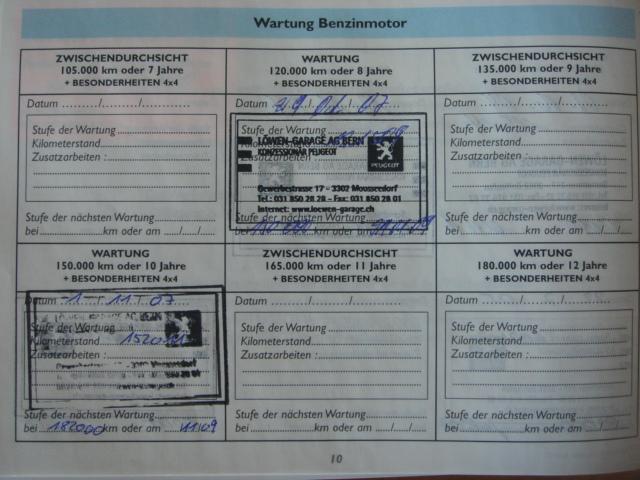 Wartung Benzinmotor
ZWISCHENDURCHSICHT
105.000 km oder 7 Jahre
+ BESONDERHEITEN 4x4
Datum ........./........./............
Stufe der Wartung
Kilometerstand
Zusatzarbeiten :
Stufe der nächsten Wartung
bei ............km oder am ....../....../......
WARTUNG
120.000 km oder 8 Jahre
+ BESONDERHEITEN 4x4
Datum 07
Stufe der Wartung
LÖWEN-GARAGE AG BERN
KONZESSIONÄR PEUGEOT
PEUGEOT
Zusatzarbeiten :
Gewerbestrasse 17 – 3302 Moosseedorf
Tel.: 031 850 28 28 – Fax: 031 850 28 01
Internet: www.loewen-garage.ch
Stufe der nächsten Wartung
bei km oder am
ZWISCHENDURCHSICHT
135.000 km oder 9 Jahre
+ BESONDERHEITEN 4x4
Datum ........./........./............
Stufe der Wartung
Kilometerstand
Zusatzarbeiten :
Stufe der nächsten Wartung
bei ............km oder am ....../....../......
WARTUNG
150.000 km oder 10 Jahre
+ BESONDERHEITEN 4x4
Datum 11 07
LÖWEN-GARAGE AG BERN
Stufe der Wartung
Kilometerstand
Zusatzarbeiten :
Stufe der nächsten Wartung
bei 182000 km oder am 11/09
ZWISCHENDURCHSICHT
165.000 km oder 11 Jahre
+ BESONDERHEITEN 4x4
Datum ........./........./............
Stufe der Wartung
Kilometerstand
Zusatzarbeiten :
Stufe der nächsten Wartung
bei ............km oder am ....../....../......
WARTUNG
180.000 km oder 12 Jahre
+ BESONDERHEITEN 4x4
Datum ........./........./............
Stufe der Wartung
Kilometerstand
Zusatzarbeiten :
Stufe der nächsten Wartung
bei ............km oder am ....../....../......
10